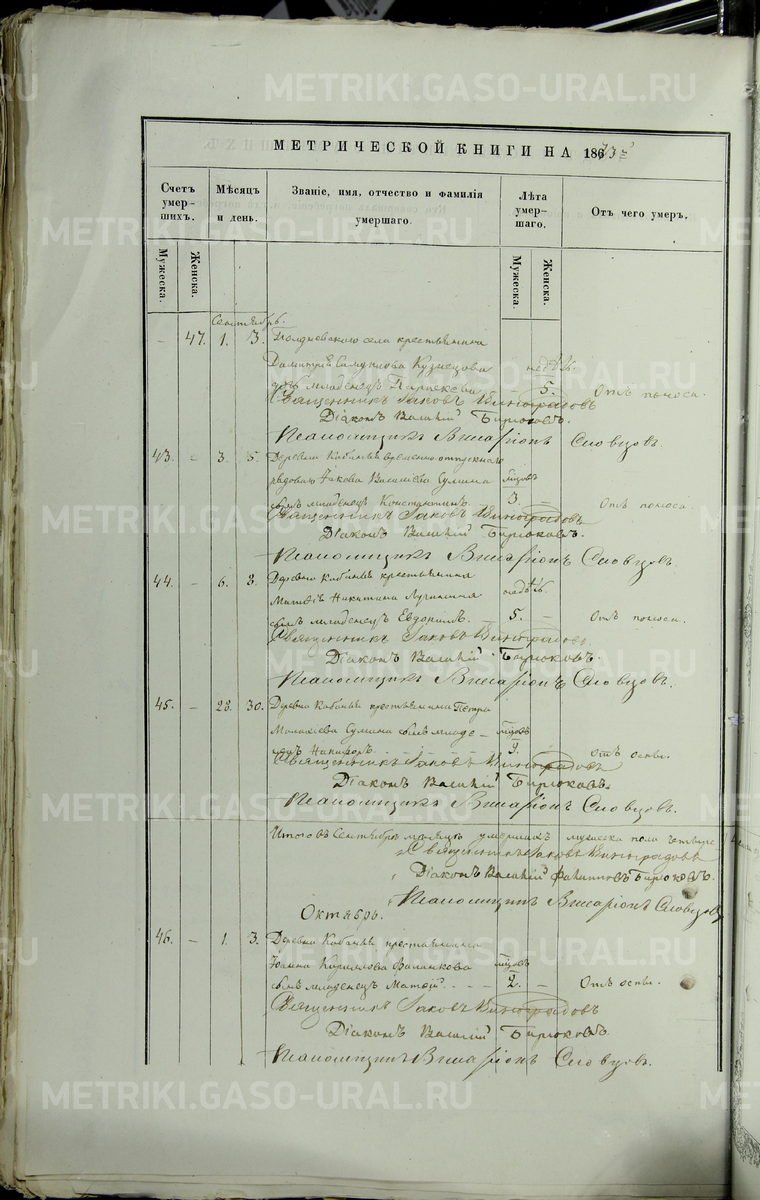 МЕТРИЧЕСКОЙ КНИГИ НА 1863 73й
Счетъ умер-шихъ.
Мѣсяцъ и день.
Званіе, имя, отчество и фамилія умершаго.
Лѣта умер-шаго.
Отъ чего умеръ.
Мужеска.
Женска.
Мужеска.
Женска.
Сентябрь.
– 47. 1. 3. села крестьянина
Димитрія Кузнецова недѣль
дочь младенецъ – 5. Отъ поноса.
Священникъ Іаковъ Виноградовъ
Діаконъ Василій Бирюковъ.
Псаломщикъ Виссаріонъ Словцовъ.
43. – 3. 5. Деревни Кабаньи временно-отпускнаго
рядоваго Іакова Васильева Сулина мѣсяцовъ
сынъ младенецъ Константинъ. 3. – Отъ поноса.
Священникъ Іаковъ Виноградовъ
Діаконъ Василій Бирюковъ.
Псаломщикъ Виссаріонъ Словцовъ.
44. – 6. 8. Деревни Кабаньи крестьянина
Матѳія Никитина недѣль
сынъ младенецъ Евдокимъ. 5. – Отъ поноса.
Священникъ Іаковъ Виноградовъ
Діаконъ Василій Бирюковъ.
Псаломщикъ Виссаріонъ Словцовъ.
45. – 28. 30. Деревни Кабаньи крестьянина Петра
Сулина сынъ младе- мѣсяцовъ
нецъ Никифоръ. 9. – Отъ оспы.
Священникъ Іаковъ Виноградовъ
Діаконъ Василій Бирюковъ.
Псаломщикъ Виссаріонъ Словцовъ.
Итого въ Сентябрѣ мѣсяцѣ умершихъ мужеска пола четыре
Священникъ Іаковъ Виноградовъ
Діаконъ Василій Филипповъ Бирюковъ.
Псаломщикъ Виссаріонъ Словцовъ
Октябрь.
46. – 1. 3. Деревни Кабаньи крестьянина
Іоанна Кириллова мѣсяцовъ
сынъ младенецъ Матѳій. 2. – Отъ оспы.
Священникъ Іаковъ Виноградовъ
Діаконъ Василій Бирюковъ.
Псаломщикъ Виссаріонъ Словцовъ.
METRIKI.GASO-URAL.RU